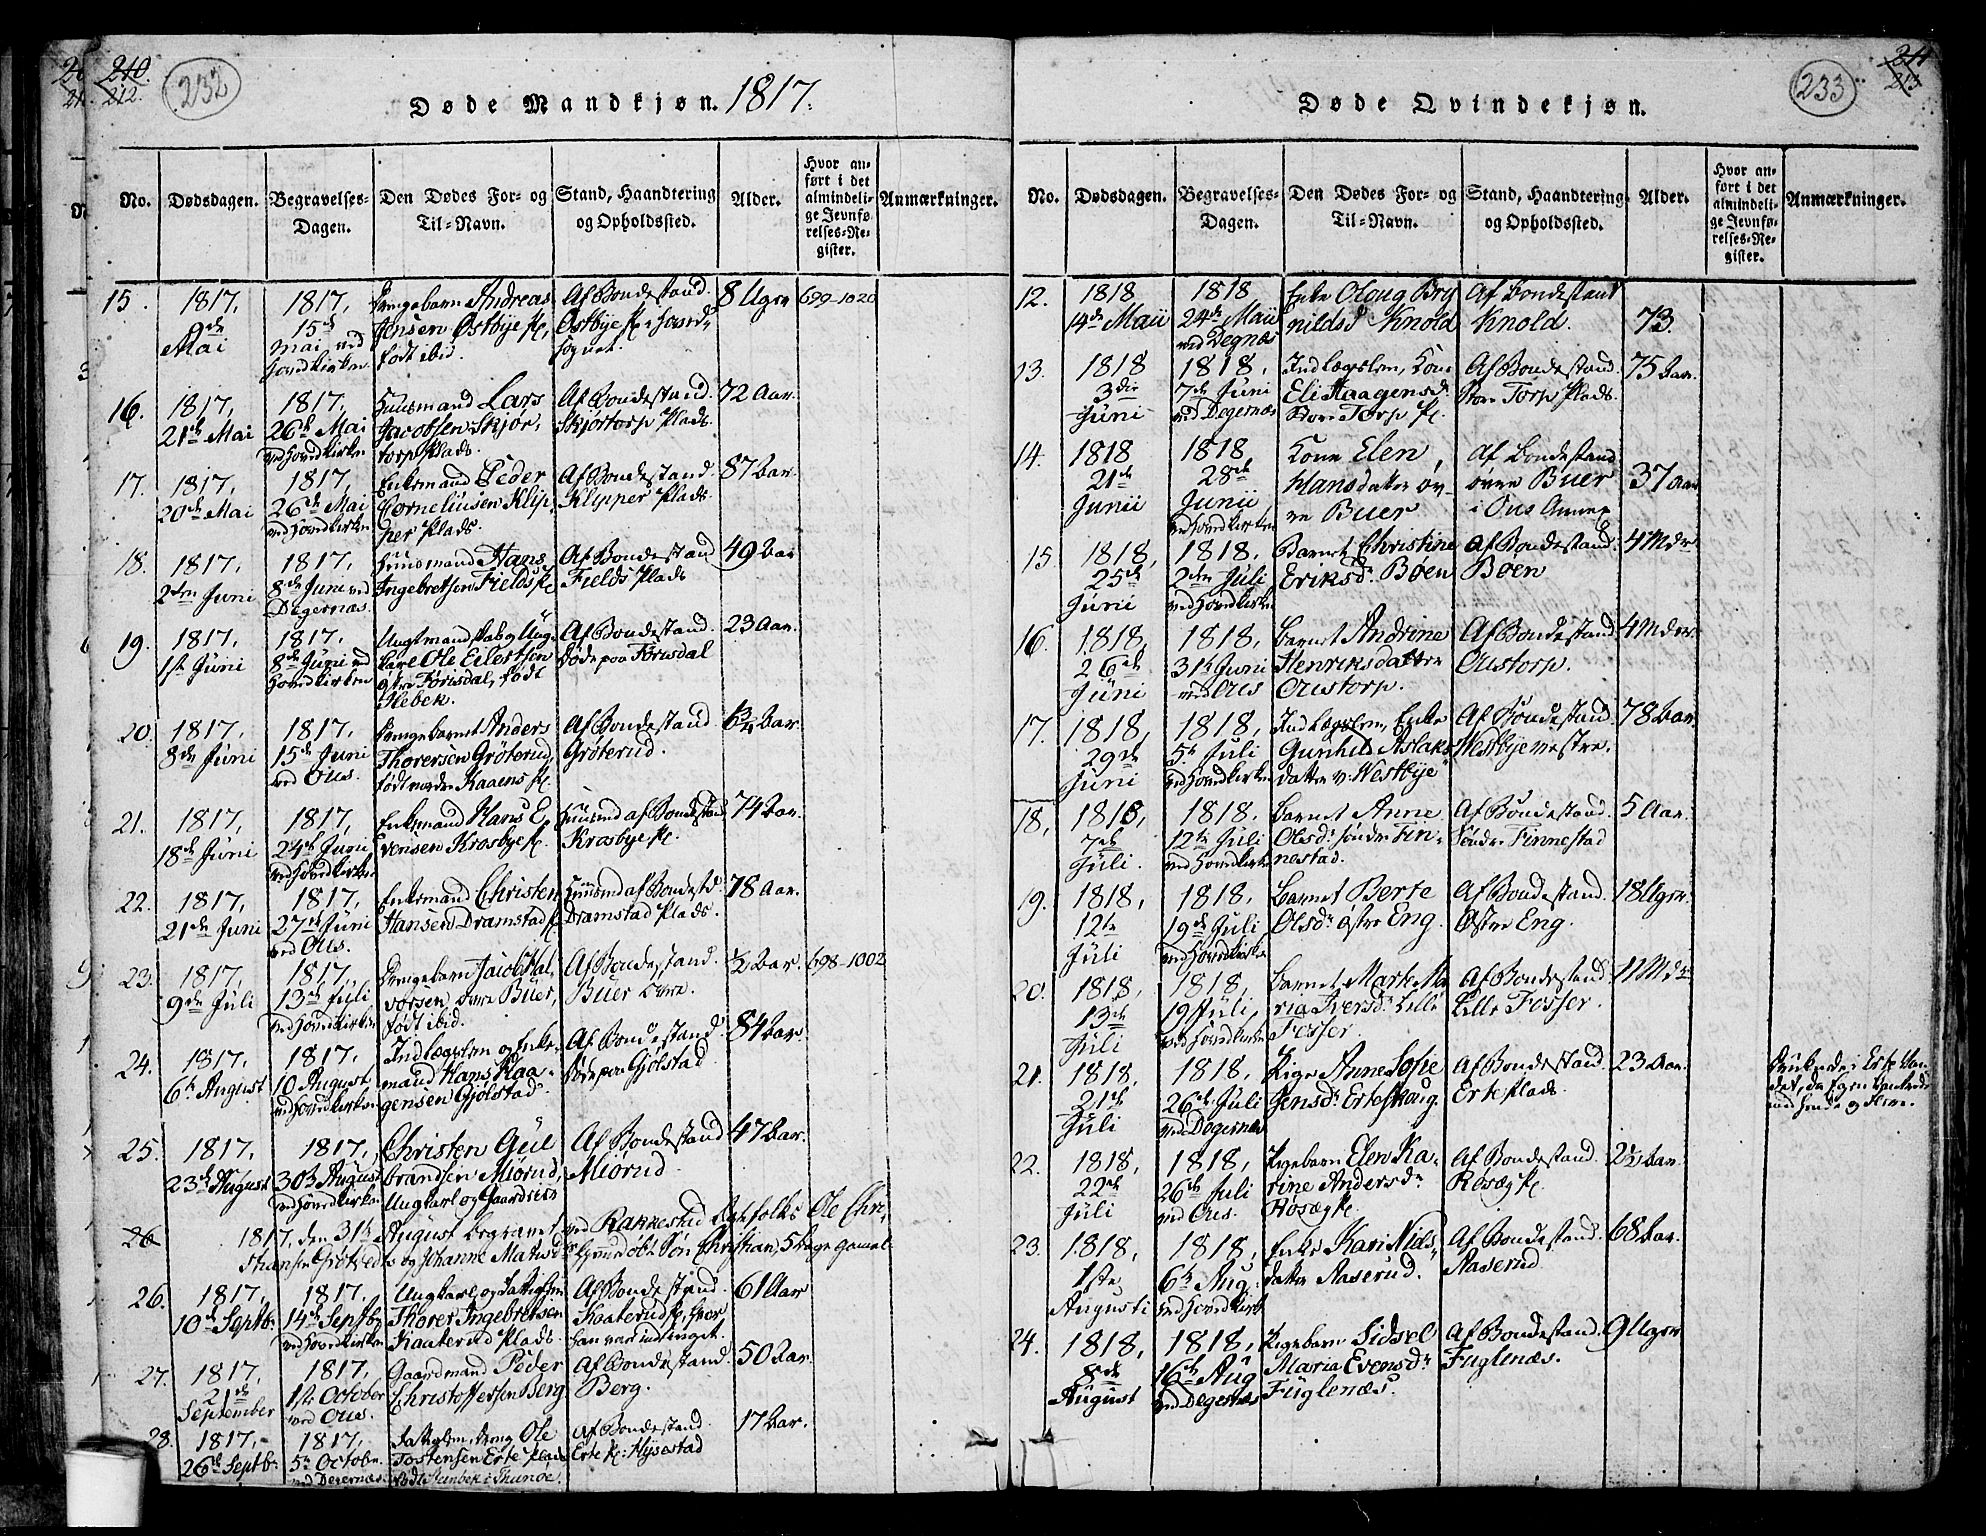 210.
212.
232
Døde Mandkjøn. 1817.
No.
Dødsdagen.
Begravelses-Dagen.
Den Dødes For- og Til-Navn.
Stand, Haandtering og Opholdssted.
Alder.
Hvor anført i det almindelige Jevnførelses-Register.
Anmærkninger.
15. 1817, 9de Mai
1817, 15de Mai, ved Hovedkirken
Drengebarn Andreas Jensen Østbye Pl, født ibid.
Af Bondestand. Østbye Pl i Hovedsognet.
8 Uger
699-1020
16. 1817, 21de Mai
1817, 26de Mai ved Hovedkirken
Huusmand Lars Jacobsen Skjørtorp Plads.
Af Bondestand. Skjørtorp Plads.
72 Aar.
17. 1817, 20de Mai
1817, 26de Mai ved Hovedkirken
Enkemand Peder Corneliusen Klypper Plads.
Af Bondestand. Klypper Plads.
87 Aar.
18. 1817, 2den Juni
1817, 8de Juni ved Degernæs.
Huusmand Hans Ingebretsen Fields Pl
Af Bondestand Fields Plads
49 Aar
19. 1817, 1ste Juni
1817, 8de Juni ved Hovedkirken
Ole Eilertsen Førisdal, født Slebek.
Af Bondestand. Døde paa Førisdal
23 Aar.
20. 1817, 8de Juni
1817, 15de Juni ved Øus.
Drengebarnet Anders Thorersen Gröterud, født nordre Kaaens Pl.
Af Bondestand. Gröterud.
21. 1817, 18de Juni
1817, 24de Juni ved Hovedkirken
Enkemand Hans Evensen Krosbye Pl.
Huusmd af Bondestand Krosbye Pl.
74 Aar.
22. 1817, 21de Juni
1817, 27de Juni ved Øus.
Enkemand Christen Hansen Dramstad Pl
Huusmd af Bondestd. Dramstad Plads.
78 Aar.
23. 1817, 9de Juli
1817, 13de Juli ved Hovedkirken
Drengebarn Jacob Halvorsen øvre Buer, født ibid.
Af Bondestand. Buer øvre.
½ Aar.
698-1002
24. 1817, 6te August
1817, 10 August, ved Hovedkirken
Indlægslem og Enkemand Hans Haagensen Gjølstad.
Af Bondestand. Døde paa Gjølstad
84 Aar.
25. 1817, 23de August
1817, 30te August ved Hovedkirken
Christen Gulbrandsen Miörud, Ungkarl og Gaardseier
Af Bondestand Miörud.
47 Aar.
26 1817, den 31te August begravet ved Rakkestad Ægtefolks Ole Christiansen og Johanne Søn Christian, 5 Dage gamel
26. 1817, 10de Septbr.
1817, 14de Septbr ved Hovedkirken
Ungkarl og Fattiglem Thorer Ingebretsen Kaaterud Plads.
Af Bondestand. Kaaterud Pl, hvor han var indtinget.
61 Aar
27. 1817, 21de September
1817, 1ste October ved Øus.
Gaardmand Peder Christoffersen Berg
Af Bondestand. Berg.
50 Aar.
28. 1817, 26de Septbr
1817, 5te Octobr. ved Degernæs
Fattiglem, dreng Ole Tostensen Erte Plads
Af Bondestand Erte Pl: Hysestad
17 Aar.
211
213
233
Døde Qvindekjøn.
No.
Dødsdagen.
Begravelses-Dagen.
Den Dødes For- og Til-Navn.
Stand, Haandtering og Opholdssted.
Alder.
Hvor anført i det almindelige Jevnførelses-Register.
Anmærkninger.
12. 1818 14de Maii
1818 24de Maii ved Degnæs
Enke Oloug Brynildsd Knold
Af Bondestand Knold.
73.
13. 1818 3die Juni
1818, 7de Juni ved Degernæs
Indlægslem, Kone Eli Haagensd. Store Torp Pl.
Af Bondestand. Store Torp Plads.
75 Aar.
14. 1818 21de Junii
1818, 28de Junii ved Hovedkirken
Kone Elen Hansdatter øvre Buer
Af Bondestand øvre Buer i Øus Annex
37 Aar
15. 1818, 25de Juni
1818, 2den Juli ved Hovedkirken
Barnet Christine Eriksdr Böen
Af Bondestand. Böen
4 Mdr
16. 1818, 26de Juni
1818, 31te Juni ved Øus
Barnet Andrine Henriksdatter Øustorp.
Af Bondestand Øustorp.
4 Mdr.
17. 1818, 29de Juni
1818, 5te Juli ved Hovedkirken
Indlægslem, Enke Gunhild Aslaksdatter v: Westbye
Af Bondestand. Westbye vestre.
78 Aar
18, 1818, 7de Juli.
1818. 12te Juli ved Hovedkirken
Barnet Anne Olesdr söndre Finnestad.
Af Bondestand. Söndre Finnestad
5 Aar.
19. 1818, 12te Juli
1818, 19de Juli ved Hovedkirken
Barnet Berte Olesdr østre Eng
Af Bondestand. Østre Eng.
18 Uger.
20. 1818, 13de Juli
1818, 19 Juli, ved Hovedkirken
Barnet Marte Maria Iversdr Lille Fosser.
Af Bondestand Lille Fosser.
11 Mdr
21. 1818, 21de Juli
1818, 26de Juli ved Degernæs
Pige Anne Sofie Jensdr Erteskoug.
Af Bondestand Erte Plads.
23 Aar.
22. 1818, 22de Juli
1818, 26de Juli ved Øus.
Pigebarn Elen Karine Andersdr Høsæg Pl.
Af Bondestand. Pl.
2½ Aar.
23. 1818, 1ste Augusti
1818, 6te Aug: ved Hovedkirk
Enke Kari Nielsdatter Aaserud.
Af Bondestand. Aaserud
68 Aar.
24. 1818, 8de August
1818, 16de Aug ved Degernæs
Pigebarn Sidsel Maria Evensdr Fuglenæs.
Af Bondestand. Fuglenæs.
9 Uger